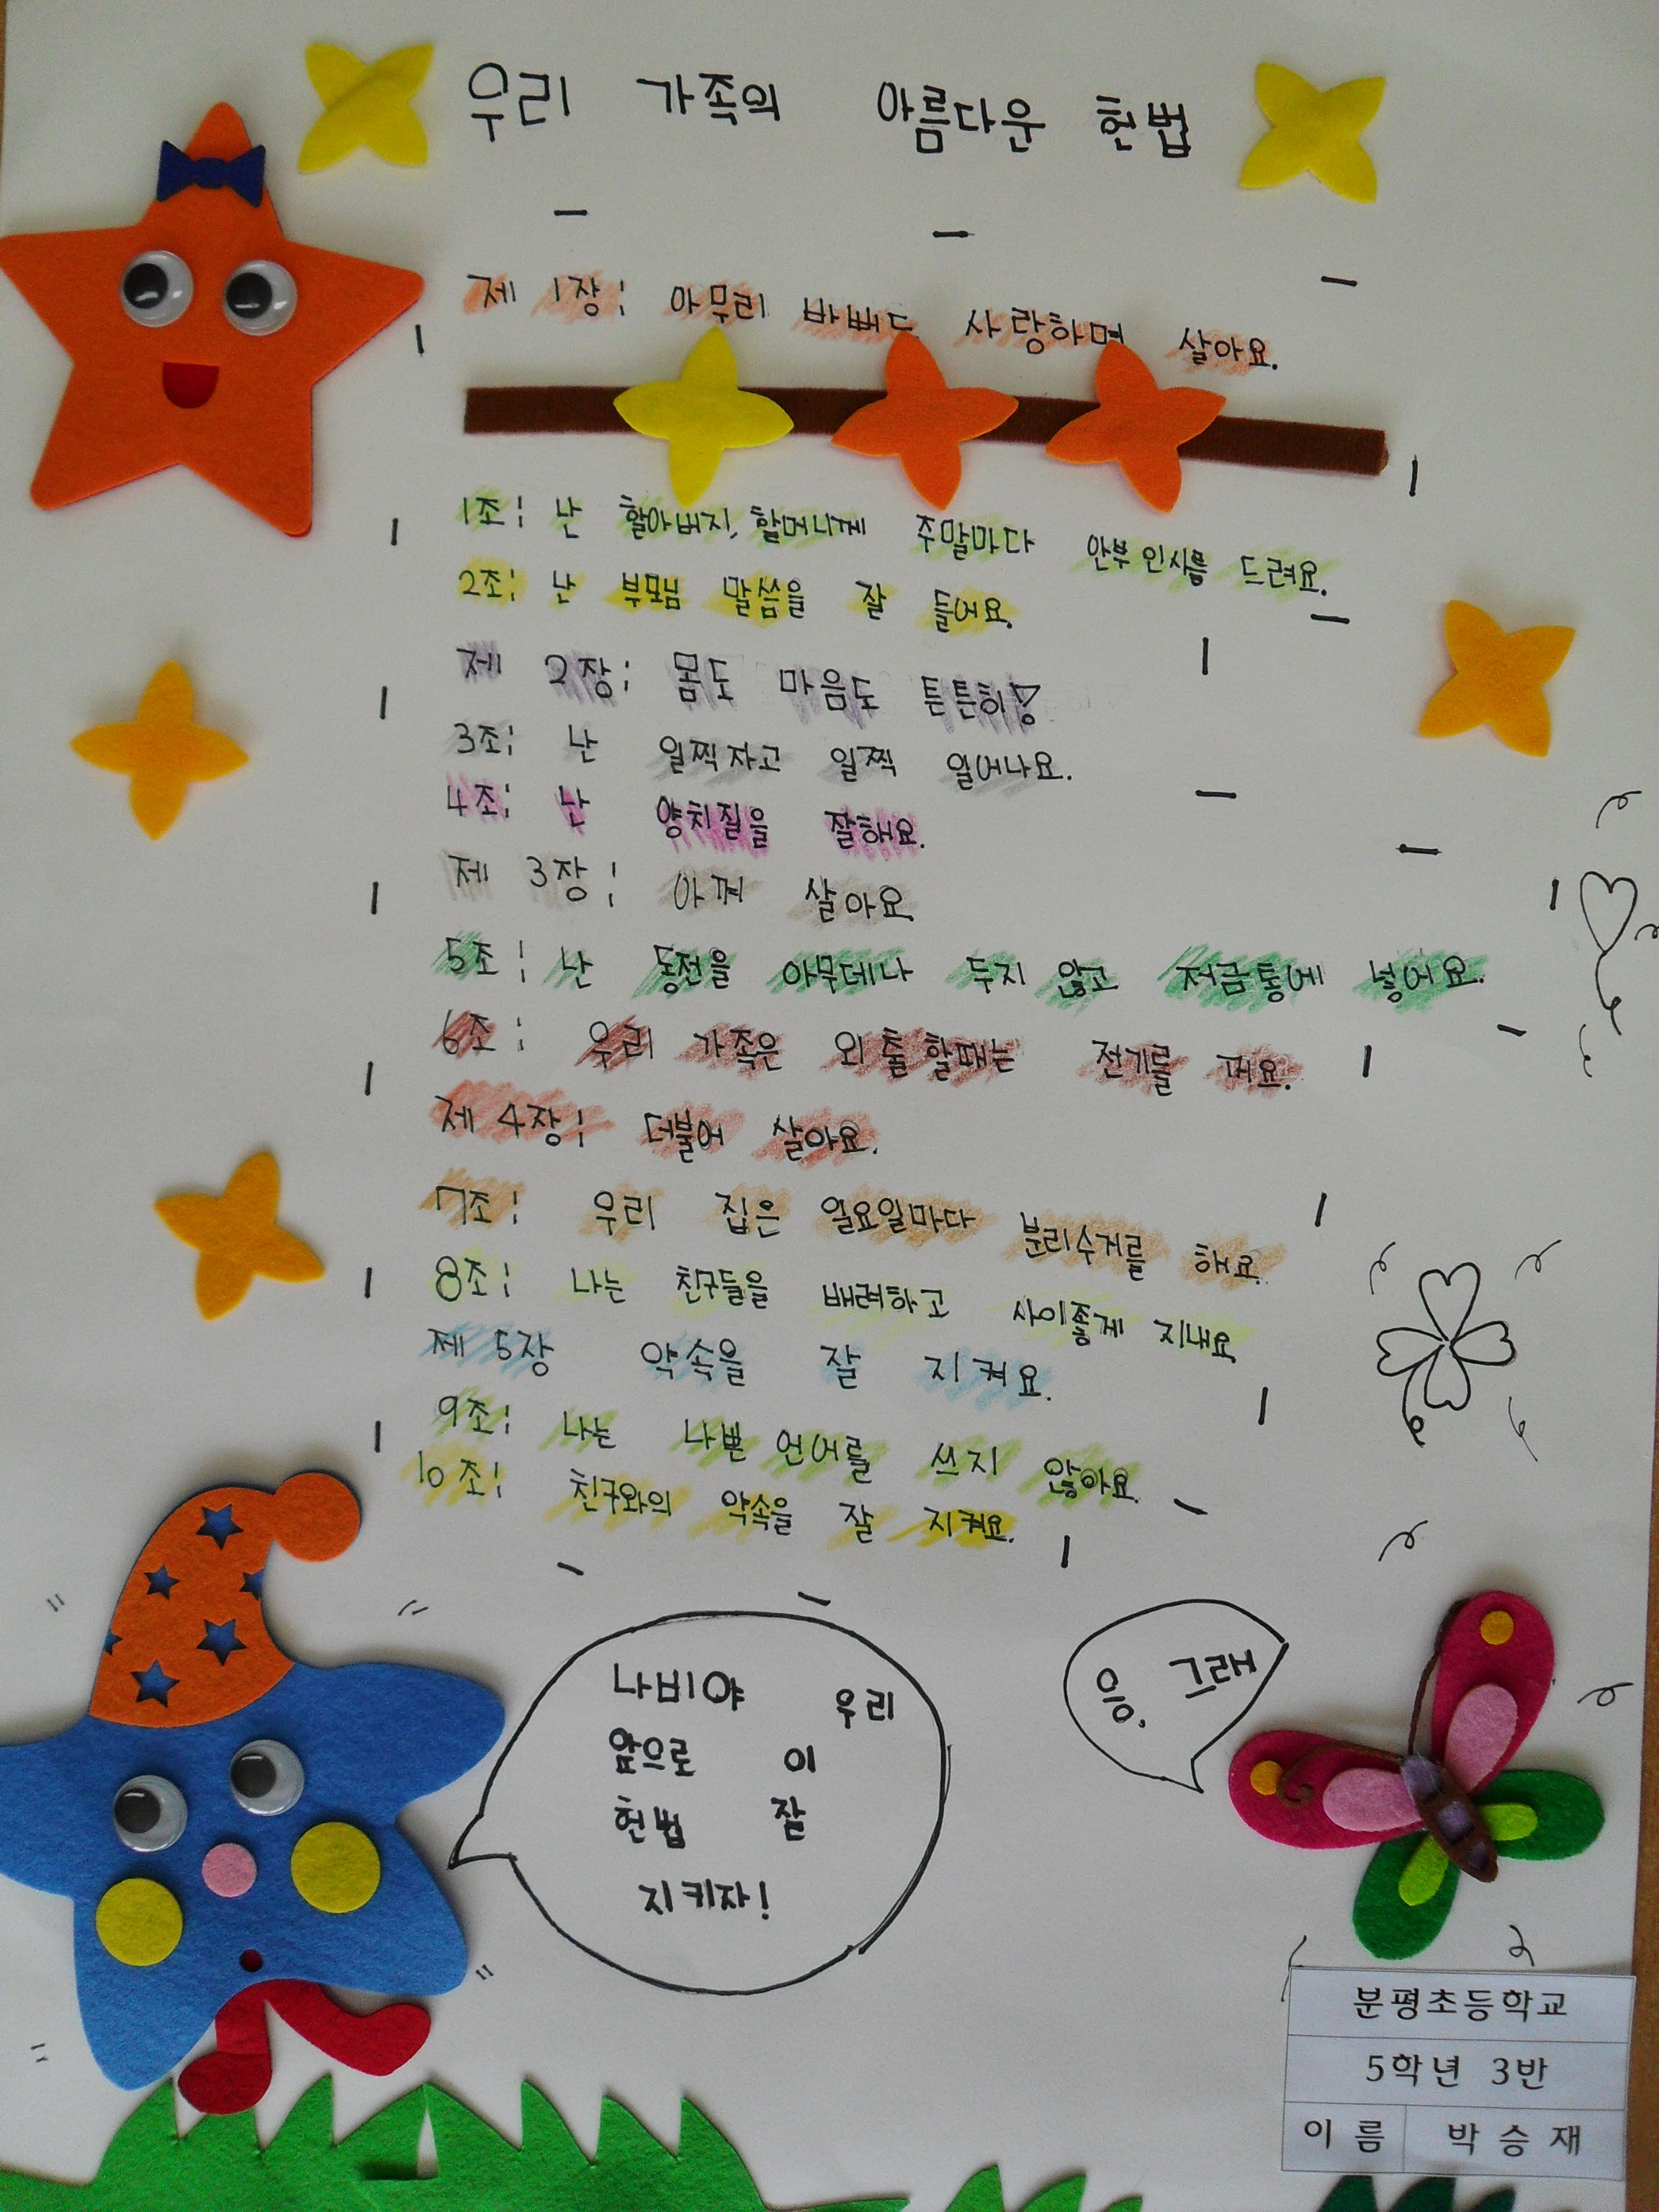 우리 가족의 아름다운 헌법
제 1장: 아무리 바빠도 사랑하며 살아요.
1조: 난 할아버지, 할머니께 주말마다 안부 인사를 드려요.
2조: 난 부모님 말씀을 잘 들어요.
제 2장: 몸도 마음도 튼튼히!
3조: 난 일찍자고 일찍 일어나요.
4조: 난 양치질을 잘해요.
제 3장: 아껴 살아요
5조: 난 동전을 아무데나 두지 않고 저금통에 넣어요.
6조: 우리 가족은 외출할때는 전기를 꺼요.
제 4장: 더불어 살아요.
7조: 우리 집은 일요일마다 분리수거를 해요.
8조: 나는 친구들을 배려하고 사이좋게 지내요
제 5장 약속을 잘 지켜요.
9조: 나는 나쁜 언어를 쓰지 않아요.
10조: 친구와의 약속을 잘 지켜요.
나비야 우리
앞으로 이
헌법 잘
지키자!
응. 그래
분평초등학교
5학년 3반
이름 박승재